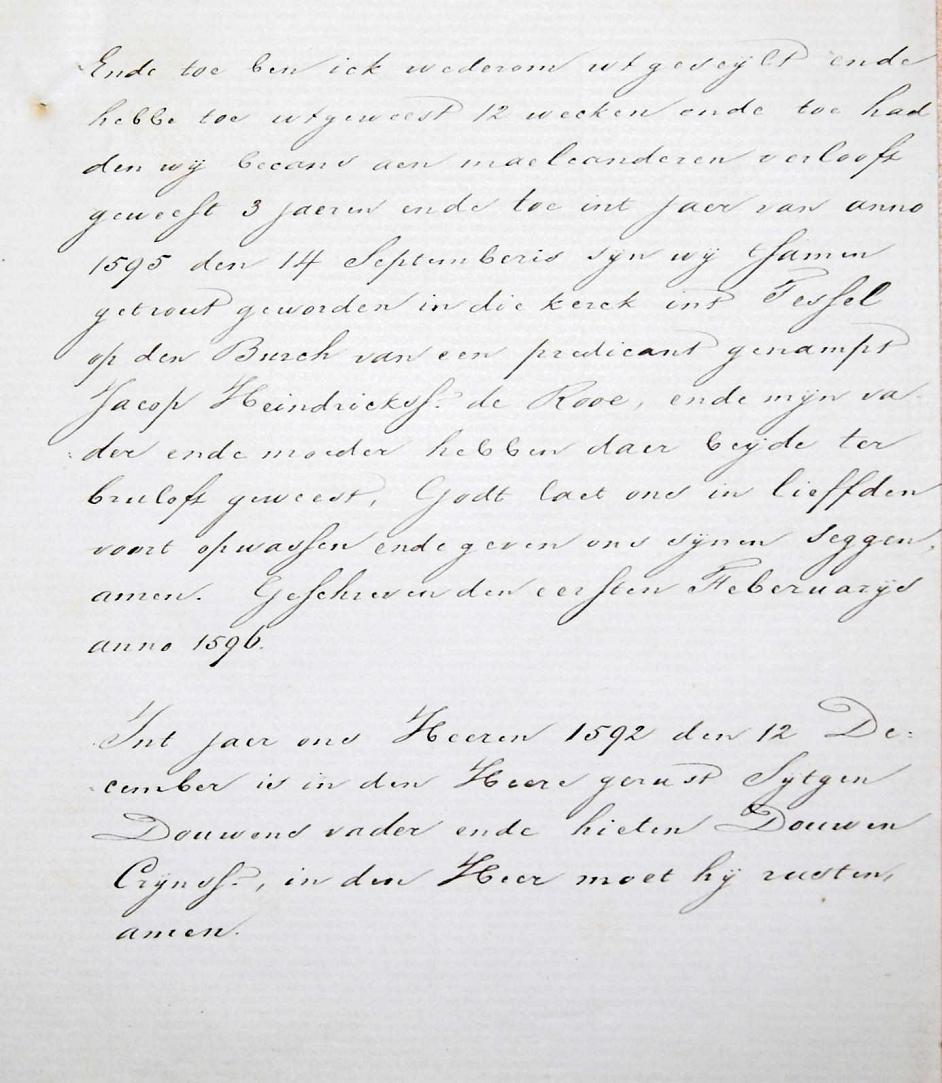 Ende toe ben ick wederom utgeseijlt ende
hebbe toe utgeweest 12 weeken ende toe had
den wij becans aen maelcanderen verlooft
geweest 3 jaeren ende toe int jaer van anno
1595 den 14 Septemberis syn wij tsamen
getrout geworden in die kerck int Tessel
op den Burch van een predicant genampt
Jacop Heindrickss. de Rooe, ende mijn va
der ende moeder hebben daer beijde ter
bruloft geweest, Godt laet ons in lieffden
voort opwassen ende geven ons synen seggen,
amen. Geschreven den eersten Februarijs
anno 1596.
Int jaer ons Heeren 1592 den 12 De:
cember is in den Heere gerust Sytgen
Douwens vader ende hieten Douwen
Crijnss., in den Heer moet hij rusten,
amen.